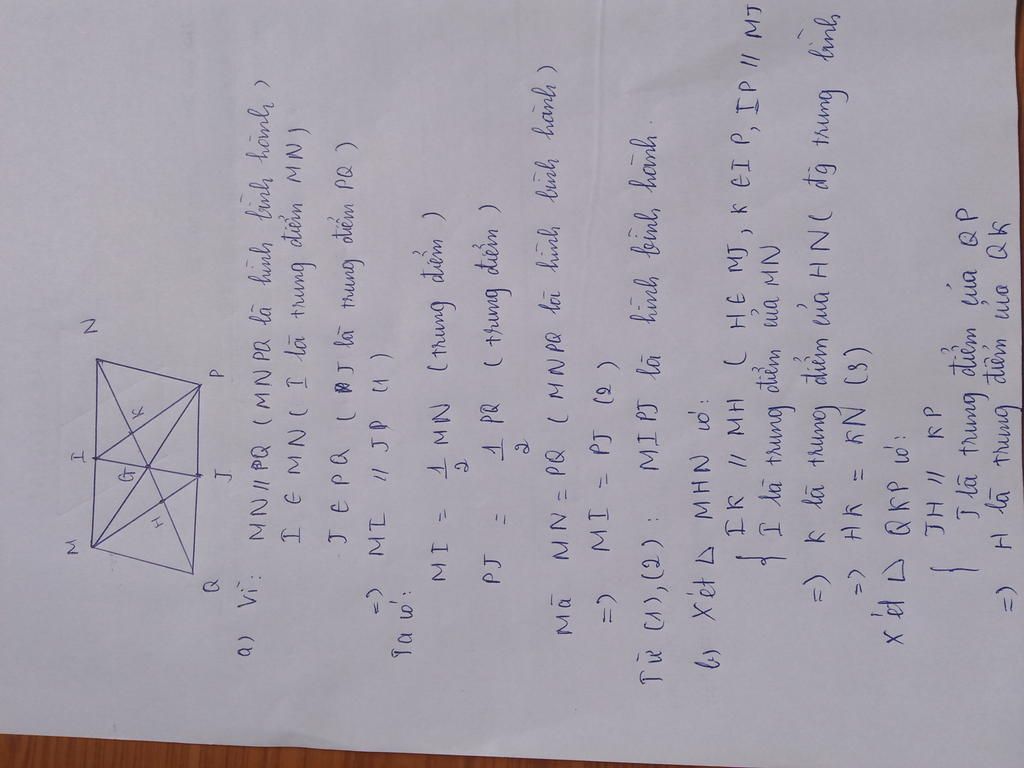 M I N
G K
H
Q J P
a) Vì: MN // PQ ( MNPQ là hình bình hành )
I ∈ MN ( I là trung điểm MN )
J ∈ PQ ( J là trung điểm PQ )
=) MI // JP (1)
Ta có:
MI = 1/2 MN ( trung điểm )
PJ = 1/2 PQ ( trung điểm )
Mà MN = PQ ( MNPQ là hình bình hành )
=) MI = PJ (2)
Từ (1), (2) : MIPJ là hình bình hành.
b) Xét △ MHN có:
{ IK // MH ( H ∈ MJ, K ∈ IP, IP // MJ
I là trung điểm của MN
=) K là trung điểm của HN ( đg trung bình
=) HK = KN (3)
Xét △ QKP có:
{ JH // KP
J là trung điểm của QP
=) H là trung điểm của QK